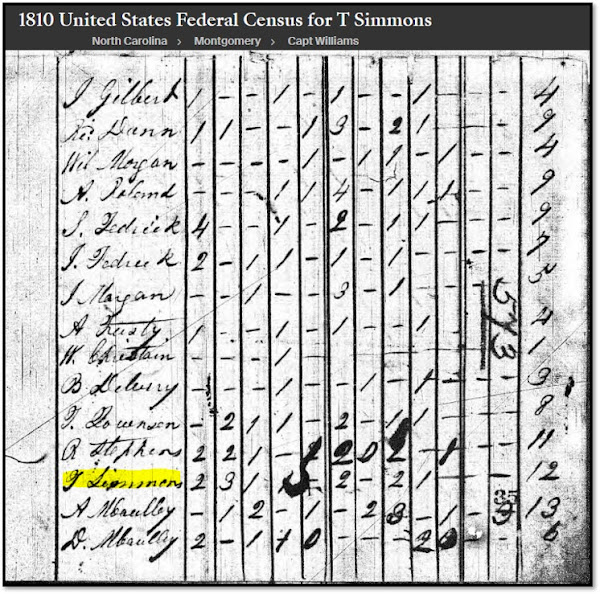 1810 United States Federal Census for T Simmons
North Carolina > Montgomery > Capt Williams
J Gilbert 1 - - 1 - 1 - - 1 - - - 4
Dunn 1 1 - - 1 3 - 2 1 - - - 9
Wil Morgan - - - - 1 - 1 1 - 1 - - 4
A. - - - 1 1 4 - 1 1 1 - - 9
S. Fedrick 4 - - 1 - 2 - 1 1 - - - 9
J. Fedrick 2 - 1 1 - 1 - 1 1 - - - 7
J Morgan - - 1 - - 3 - 1 - - - - 5
573
A 1 - - - 1 - 1 - - 1 - - - 4
W. Christain - - - 1 1
B - - - - 1 - 1 - 1 - - - 3
T. - 2 1 1 - 2 - 1 1 - - - 8
R Stephens 2 2 1 - 1 2 0 2 - 1 - - 11
T Simmons 2 3 1 - 2 - 2 1 - - - 12
A - 1 2 - 1 - 2 3 - 1 - 13
D. 2 - 1 1 0 - - - 2 0 - - 6